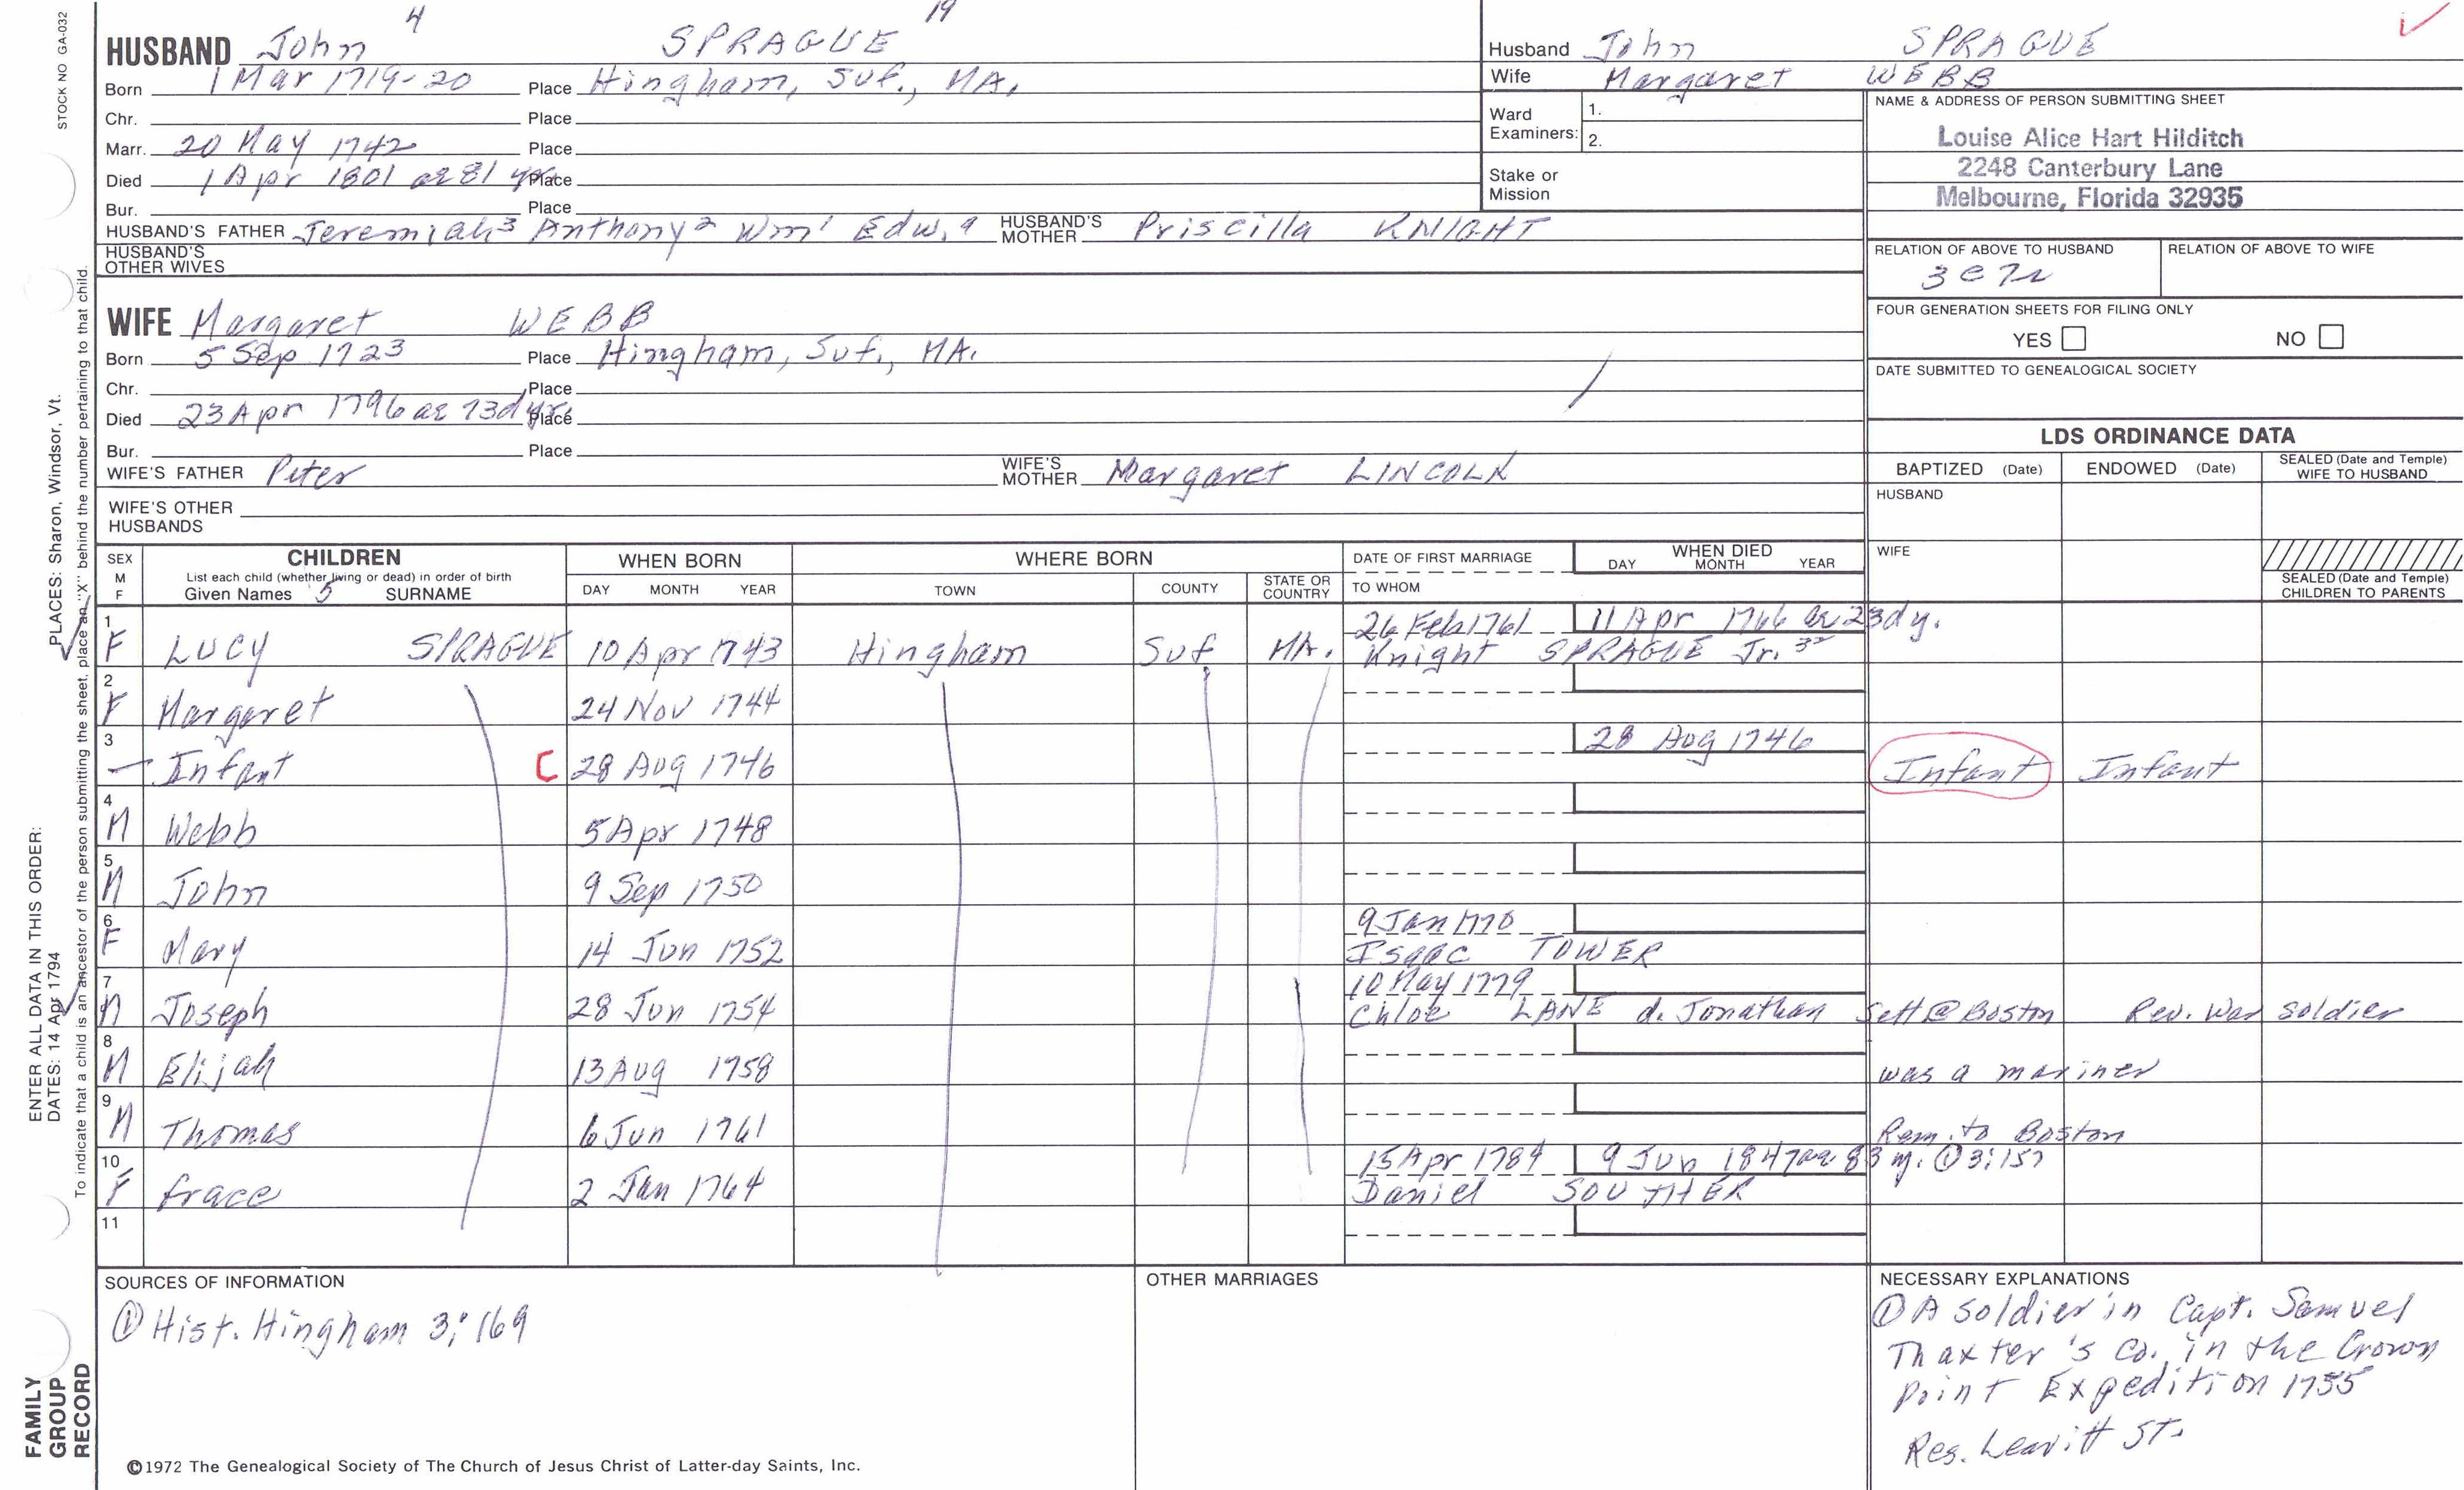 STOCK NO GA-032
4 19
HUSBAND John SPRAGUE
Born 1 Mar 1719-20 Place Hingham, Suf., MA.
Chr. Place
Marr. 20 May 1742 Place
Died 1 Apr 1801 ae 81 yr. Place
Bur. Place
HUSBAND'S FATHER Jeremiah3 Anthony2 Wm1 Edw.a HUSBAND'S MOTHER Priscilla KNIGHT
HUSBAND'S OTHER WIVES
WIFE Margaret WEBB
Born 5 Sep 1723 Place Hingham, Suf., MA.
Chr. Place
Died 23 Apr 1796 ae 73d yr. Place
Bur. Place
WIFE'S FATHER Peter WIFE'S MOTHER Margaret LINCOLN
WIFE'S OTHER HUSBANDS
Husband John SPRAGUE
Wife Margaret WEBB
Ward Examiners: 1.
2.
Stake or Mission
NAME & ADDRESS OF PERSON SUBMITTING SHEET
Louise Alice Hart Hilditch
2248 Canterbury Lane
Melbourne, Florida 32935
RELATION OF ABOVE TO HUSBAND RELATION OF ABOVE TO WIFE
3 C 7r
FOUR GENERATION SHEETS FOR FILING ONLY
YES NO
DATE SUBMITTED TO GENEALOGICAL SOCIETY
LDS ORDINANCE DATA
BAPTIZED (Date) ENDOWED (Date) SEALED (Date and Temple) WIFE TO HUSBAND
HUSBAND
WIFE
SEALED (Date and Temple) CHILDREN TO PARENTS
SEX M F
CHILDREN
List each child (whether living or dead) in order of birth
Given Names 5 SURNAME
WHEN BORN
DAY MONTH YEAR
WHERE BORN
TOWN COUNTY STATE OR COUNTRY
DATE OF FIRST MARRIAGE
TO WHOM
WHEN DIED
DAY MONTH YEAR
1 26 Feb 1761 11 Apr 1766 ae 23d y.
F LUCY SPRAGUE 10 Apr 1743 Hingham Suf MA. Knight SPRAGUE Jr.
2
F Margaret 24 Nov 1744
3 28 Aug 1746
— Infant C 28 Aug 1746 Infant Infant
4
M Webb 5 Apr 1748
5
M John 9 Sep 1750
6 9 Jan 1770
F Mary 14 Jun 1752 Isaac TOWER
7 10 May 1779
M Joseph 28 Jun 1754 Chloe LANE d. Jonathan Sett @ Boston Rev. War soldier
8
M Elijah 13 Aug 1758 was a mariner
9
M Thomas 6 Jun 1761 Rem. to Boston
10 15 Apr 1784 9 Jun 1847 ae 83 y. ① 3:157
F Grace 2 Jan 1764 Daniel SOUTHER
11
SOURCES OF INFORMATION
① Hist. Hingham 3:169
OTHER MARRIAGES
NECESSARY EXPLANATIONS
① A soldier in Capt. Samuel
Thaxter's Co. in the Crown
Point Expedition 1755
Res. Leavitt ST.
©1972 The Genealogical Society of The Church of Jesus Christ of Latter-day Saints, Inc.
FAMILY GROUP RECORD
ENTER ALL DATA IN THIS ORDER:
DATES: 14 Apr 1794 PLACES: Sharon, Windsor, Vt.
To indicate that a child is an ancestor of the person submitting the sheet, place an "X" behind the number pertaining to that child.